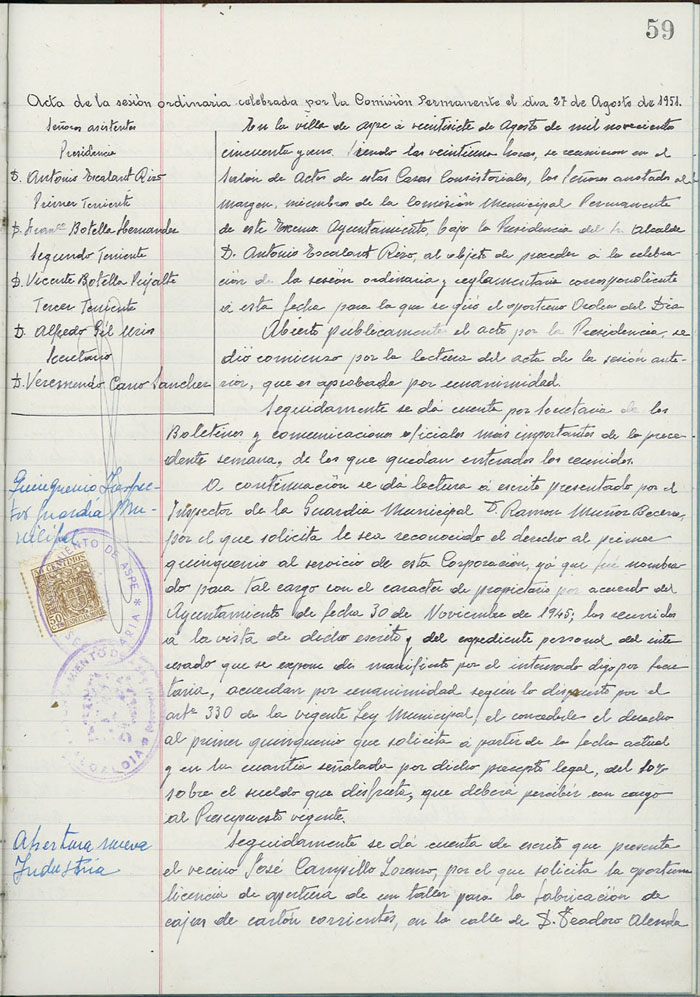 59
Acta de la sesión ordinaria celebrada por la Comisión Permanente el dia 27 de Agosto de 1951.
Señores asistentes
Presidencia
D. Antonio Escalant Rizo
Primer Teniente
D. Franco Botella Hernandez
Segundo Teniente
D. Vicente Botella
Tercer Teniente
D. Alfredo Gil Urios
Secretario
D. Veremundo Cano Sanchez
En la villa de aspe á veintisiete de Agosto de mil novecientos
cincuenta y uno. Siendo las veintiuna horas, se reunieron en el
Salón de Actos de estas Casas Consistoriales, los Señores anotados al
margen, miembros de la Comisión Municipal Permanente
de este Excmo. Ayuntamiento, bajo la Presidencia del Sr. Alcalde
D. Antonio Escalant Rizo, al objeto de proceder á la celebra-
ción de la sesión ordinaria y reglamentaria correspondiente
á esta fecha para la que se giró el oportuno Orden del Dia
Abierto publicamente el acto por la Presidencia, se
dió comienzo por la lectura del acta de la sesión ante-
rior, que es aprobada por unanimidad.
Seguidamente se dá cuenta por Secretaria de los
Boletines y comunicaciones oficiales más importantes de la prece-
dente semana, de los que quedan enterados los reunidos.
Quinquenio Inspec-
tor Guardia Mu-
nicipal
A continuación se dá lectura á escrito presentado por el
Inspector de la Guardia Municipal D. Ramon Muñoz Becerra,
por el que solicita le sea reconocido el derecho al primer
quinquenio al servicio de esta Corporación, yá que fué nombra-
do para tal cargo con el caracter de propietario por acuerdo del
Ayuntamiento de fecha 30 de Noviembre de 1945; los reunidos
á la vista de dicho escrito y del expediente personal del inte-
resado que se expone de manifiesto por el interesado digo por Secre-
taria, acuerdan por unanimidad según lo dispuesto por el
artº 330 de la vigente Ley Municipal, el concederle el derecho
al primer quinquenio que solicita á partir de la fecha actual
y en la cuantia señalada por dicho precepto legal, del 10%
sobre el sueldo que disfruta, que deberá percibir con cargo
al Presupuesto vigente.
AYUNTAMIENTO DE ASPE
SECRETARIA
50 CENTIMOS
50
AYUNTAMIENTO DE
ALCALDIA
Apertura nueva
Industria
Seguidamente se dá cuenta de escrito que presenta
el vecino José Campillo Lorenzo, por el que solicita la oportuna
licencia de apertura de un taller para la fabricación de
cajas de cartón corrientes, en la calle de D. Teodoro Alenda